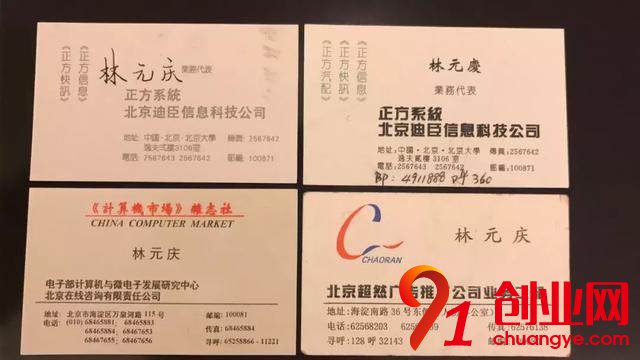 《正方信息》
《正方快訊》
林元庆 業務代表
正方系統
北京迪臣信息科技公司
地址: 中國·北京·北京大學 傳真: 2567642
逸夫貳樓3106室
電話: 2567643 2567642 郵編: 100871
《正方信息》
《正方快訊》
《正方汽配》
林元慶
業務代表
正方系統
北京迪臣信息科技公司
地址: 中國·北京·北京大學 傳真: 2567642
逸夫貳樓3106室
電話: 2567643 2567642 郵編: 100871
4911888 呼 360
《計算機市場》雜志社
CHINA COMPUTER MARKET
林元庆
电子部计算机与微电子发展研究中心
北京在线咨询有限责任公司
地址: 北京市海淀区万泉河路 115 号 邮编: 100081
电话: (010) 68465881 68465883
68465884 68467653 传真: 68465884
68467655 68467656 寻呼: 65258866-11221
CHAORAN
林元庆
北京超然广告推
公司业
地址: 海淀南路 36 号东
公室
电话: 62568203
传真: 62576138
寻呼: 128 呼 32143
邮编:
91创业网
www.91yezx.com